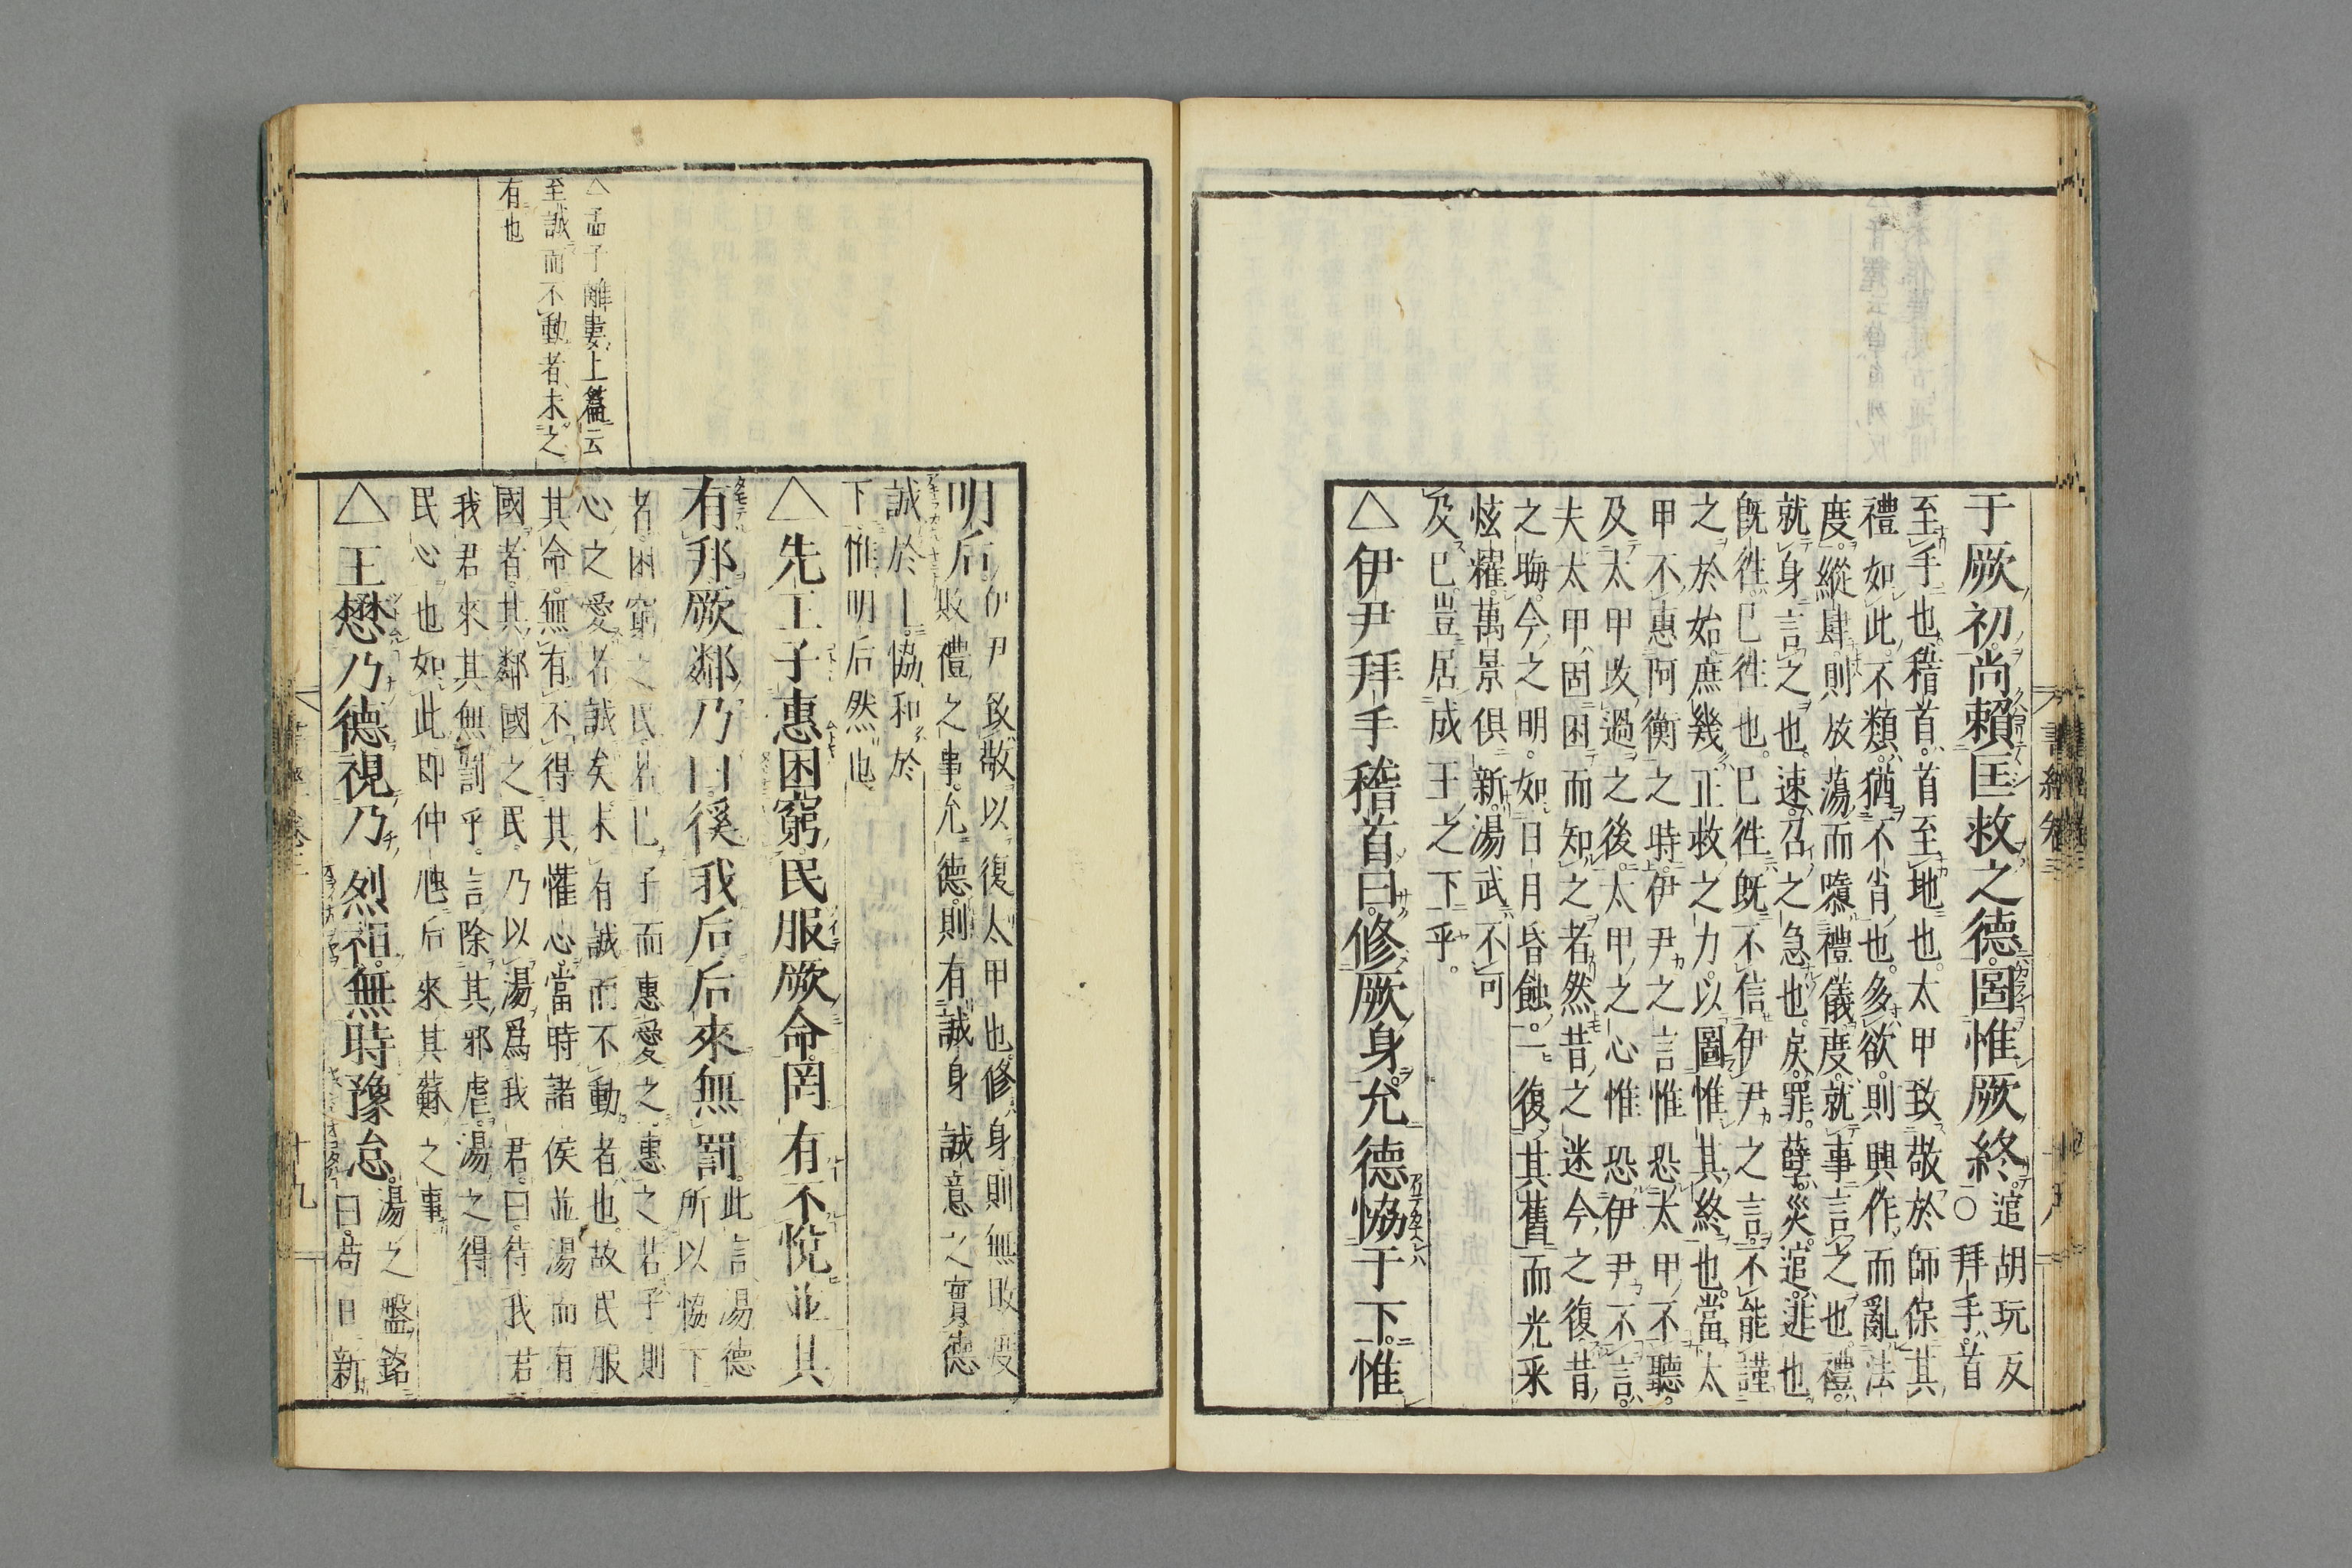 于厥初尚賴匡救之德圖惟厥終○
逭胡玩反
拜手首
至手也稽首首至地也太甲致敬於師保其
禮如此不類猶不肖也多欲則興作而亂法
度縱肆則放蕩而隳禮儀度就事言之也禮
就身言之也速召之急也戾罪孽災逭逃也
既徃已徃也已徃既不信伊尹之言不能謹
之於始庶幾正救之力以圖惟其終也當太
甲不惠阿衡之時伊尹之言惟恐太甲不聽
及太甲改過之後太甲之心惟恐伊尹不言
夫太甲固困而知之者然昔之迷今之復昔
之晦今之明如日月昏蝕一復其舊而光采
炫耀萬景俱新湯武不可
及已豈居成王之下乎
△伊尹拜手稽首曰修厥身允德協于下惟
書經卷三
明后
伊尹致敬以復太甲也修身則無敗度
敗禮之事允德則有誠身誠意之實德
誠於上協和於
下惟明后然也
△先王子惠困窮民服厥命罔有不悅並其
有邦厥鄰乃曰徯我后后來無罰
此言湯德
所以協下
者困窮之民若己子而惠愛之惠之若子則
心之愛者誠矣未有誠而不動者也故民服
其命無有不得其懽心當時諸侯並湯而有
國者其鄰國之民乃以湯爲我君曰待我君
我君來其無罰乎言除其邪虐湯之得
民心也如此即仲虺后來其蘇之事
△王懋乃德視乃烈祖無時豫怠
湯之盤銘
曰苟日新
△孟子離婁上篇云
至誠而不動者未之
有也
十九